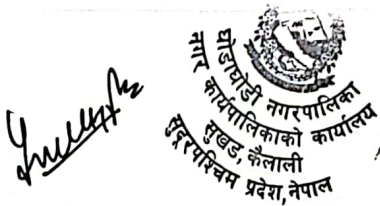 घोडाघोडी नगरपालिका
नगर कार्यपालिकाको कार्यालय
सुखड, कैलाली
सुदूरपश्चिम प्रदेश, नेपाल